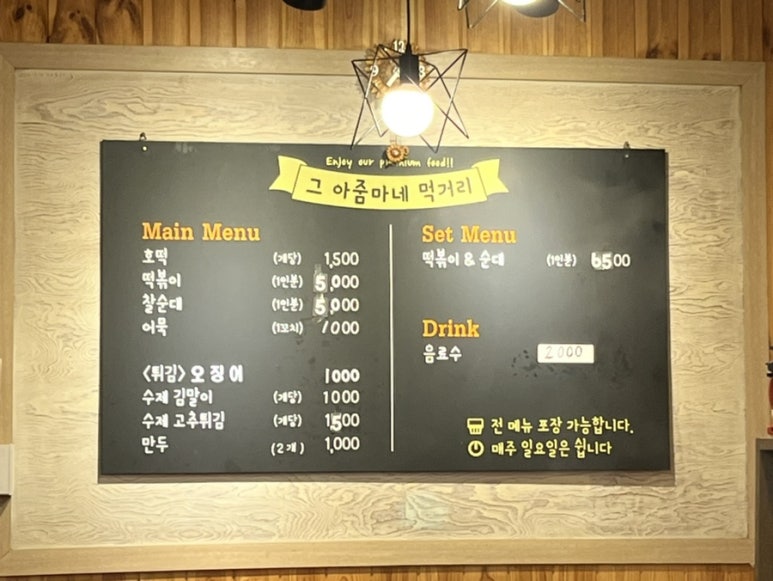 Enjoy our premium food!!
그 아줌마네 먹거리
Main Menu
호떡 (개당) 1,500
떡볶이 (1인분) 5,000
찰순대 (1인분) 5,000
어묵 (1꼬치) 1000
<튀김> 오징어 1000
수제 김말이 (개당) 1000
수제 고추튀김 (개당) 1500
만두 (2개) 1,000
Set Menu
떡볶이 & 순대 (1인분) 6500
Drink
음료수 2000
전 메뉴 포장 가능합니다.
매주 일요일은 쉽니다